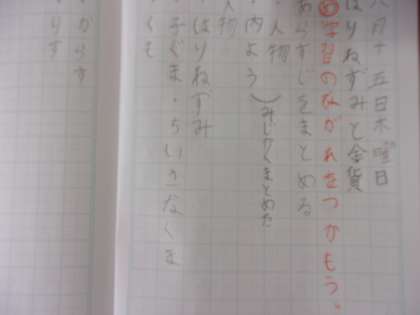 八月十五日木曜日
はりねずみと金貨
め学習のながれをつかもう。
あらすじをまとめる
・人物
・内よう)みじかくまとめた
人物
・はりねずみ
・子ぐま・ちいさなくま
・くも
からす
りす